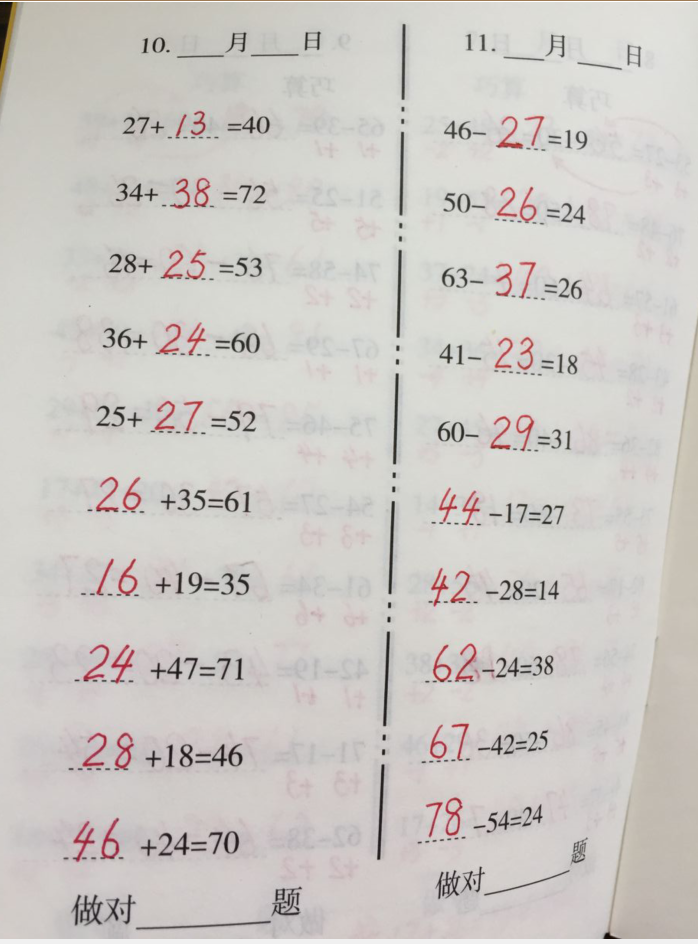 10. ____月____日
27+ 13 =40
34+ 38 =72
28+ 25 =53
36+ 24 =60
25+ 27 =52
26 +35=61
16 +19=35
24 +47=71
28 +18=46
46 +24=70
做对________题
11. ____月____日
46– 27 =19
50– 26 =24
63– 37 =26
41– 23 =18
60– 29 =31
44 –17=27
42 –28=14
62 –24=38
67 –42=25
78 –54=24
做对________题